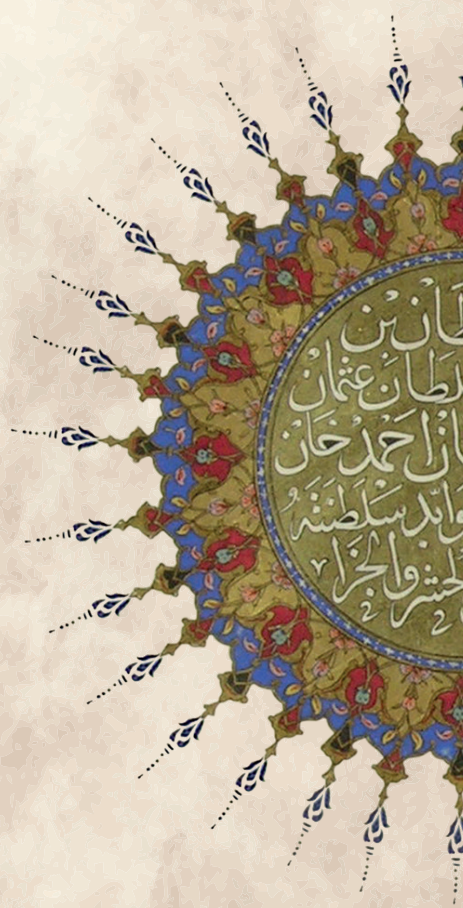 طان بن
لطان عثمان
ان احمد خان
وابد سلطنته
لحشر والجزا